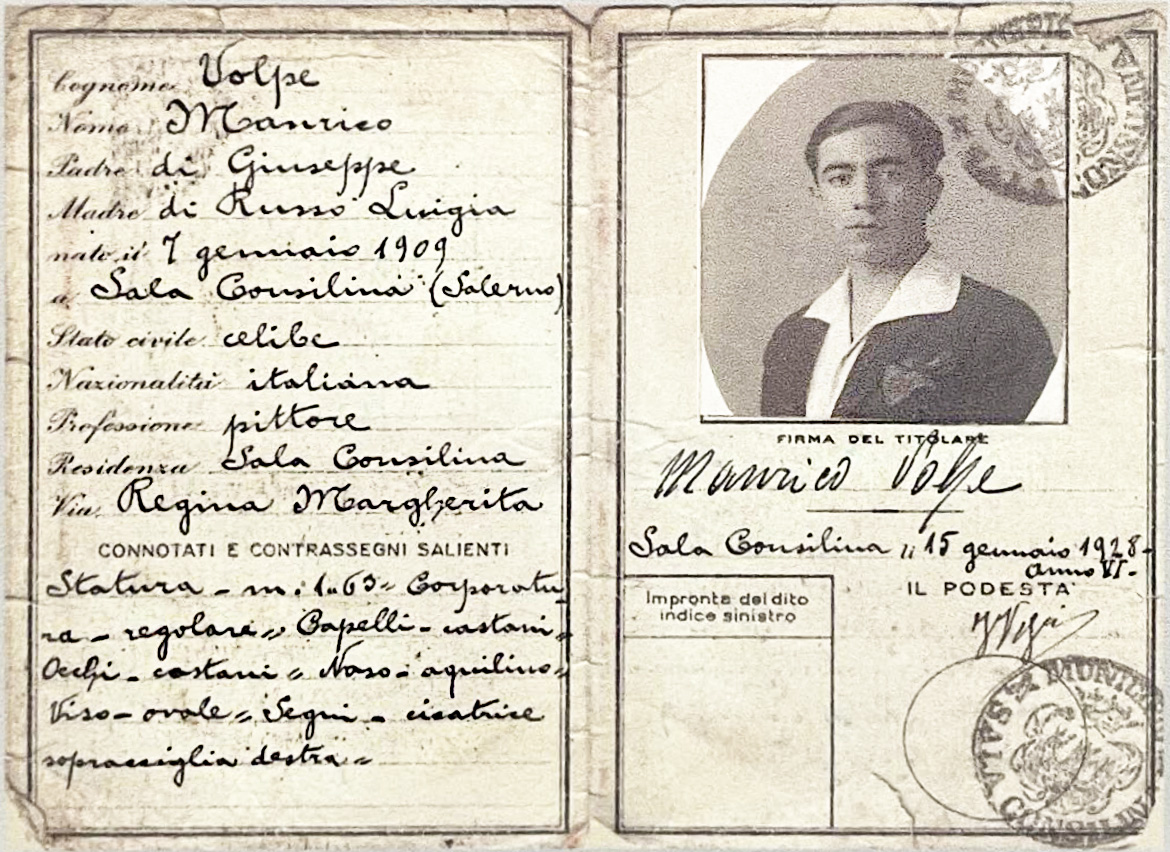 Cognome Volpe
Nome Manrico
Padre di Giuseppe
Madre di Russo Luigia
nato il 7 gennaio 1909
a Sala Consilina (Salerno)
Stato civile celibe
Nazionalità italiana
Professione pittore
Residenza Sala Consilina
Via Regina Margherita
CONNOTATI E CONTRASSEGNI SALIENTI
Statura - m: 1.63 = Corporatu
ra - regolare = Capelli - castani =
Occhi - castani = Naso - aquilino =
Viso - ovale = Segni - cicatrice
sopracciglia destra =
FIRMA DEL TITOLARE
Manrico Volpe
Sala Consilina, 15 gennaio 1928 -
Anno VI -
IL PODESTA'
Impronta del dito
indice sinistro
SALA CONSILINA